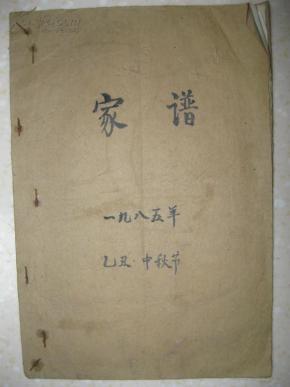 家谱
一九八五年
乙丑·中秋节